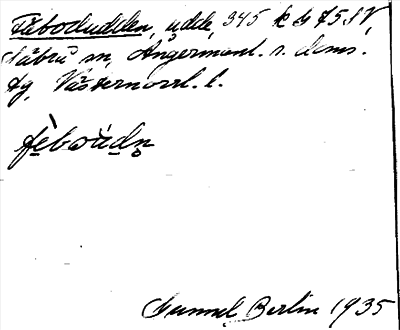 Fäboduddden, udde, 345 k b 75 SV,
Säbrå sn, Ångermanl. s. doms.
dg, Västernorrl. l.
fè̱bωùdn̥
Gunnel Berlin 1935